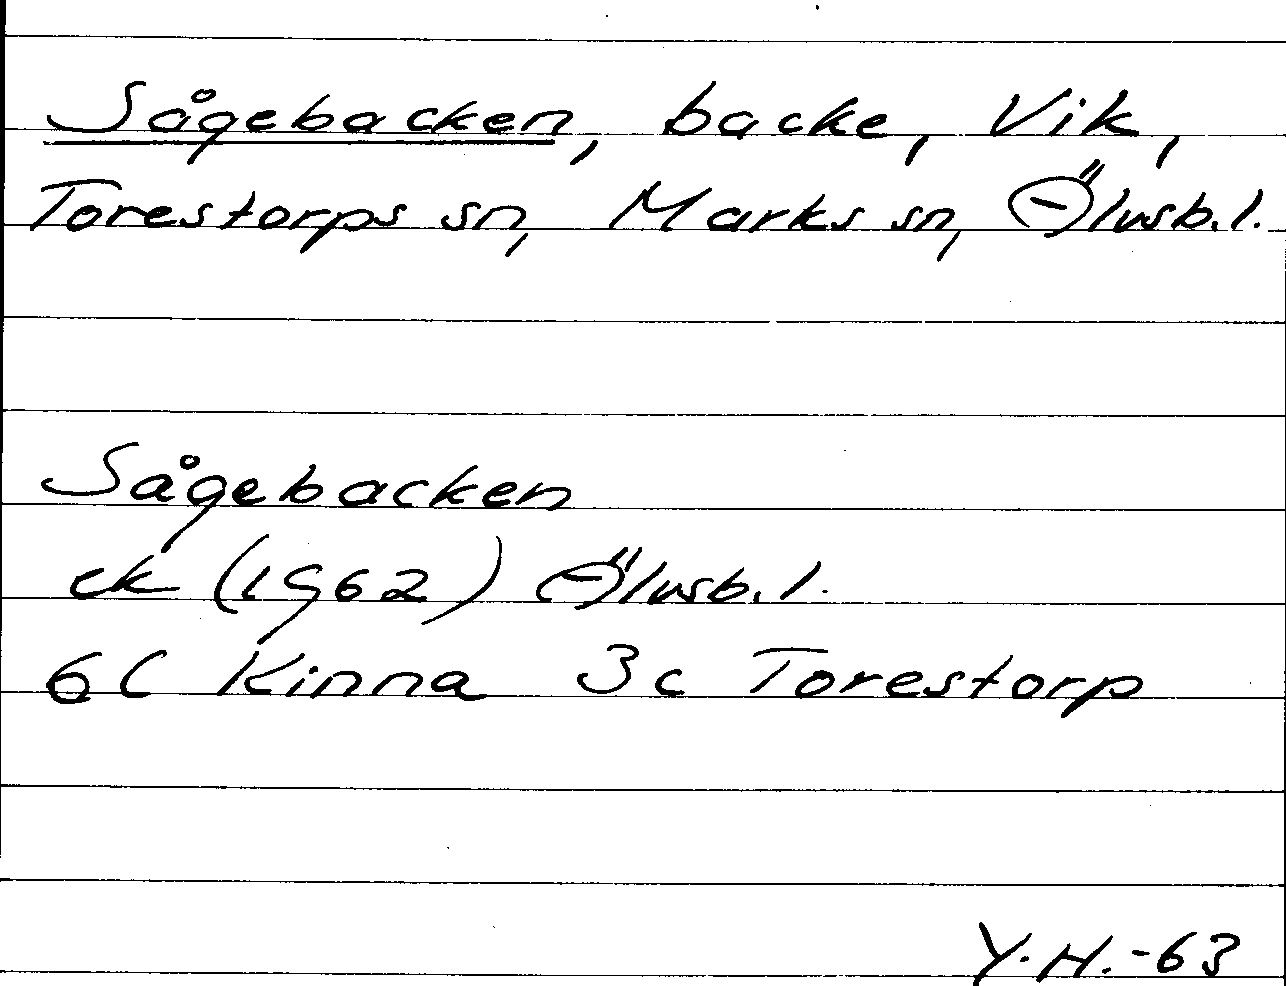 Sågebacken, backe, Vik,
Torestorps sn, Marks sn, Älvsb. l.
Sågebacken
ek (1962) Älvsb. l.
6C Kinna 3c Torestorp
Y.H.-63